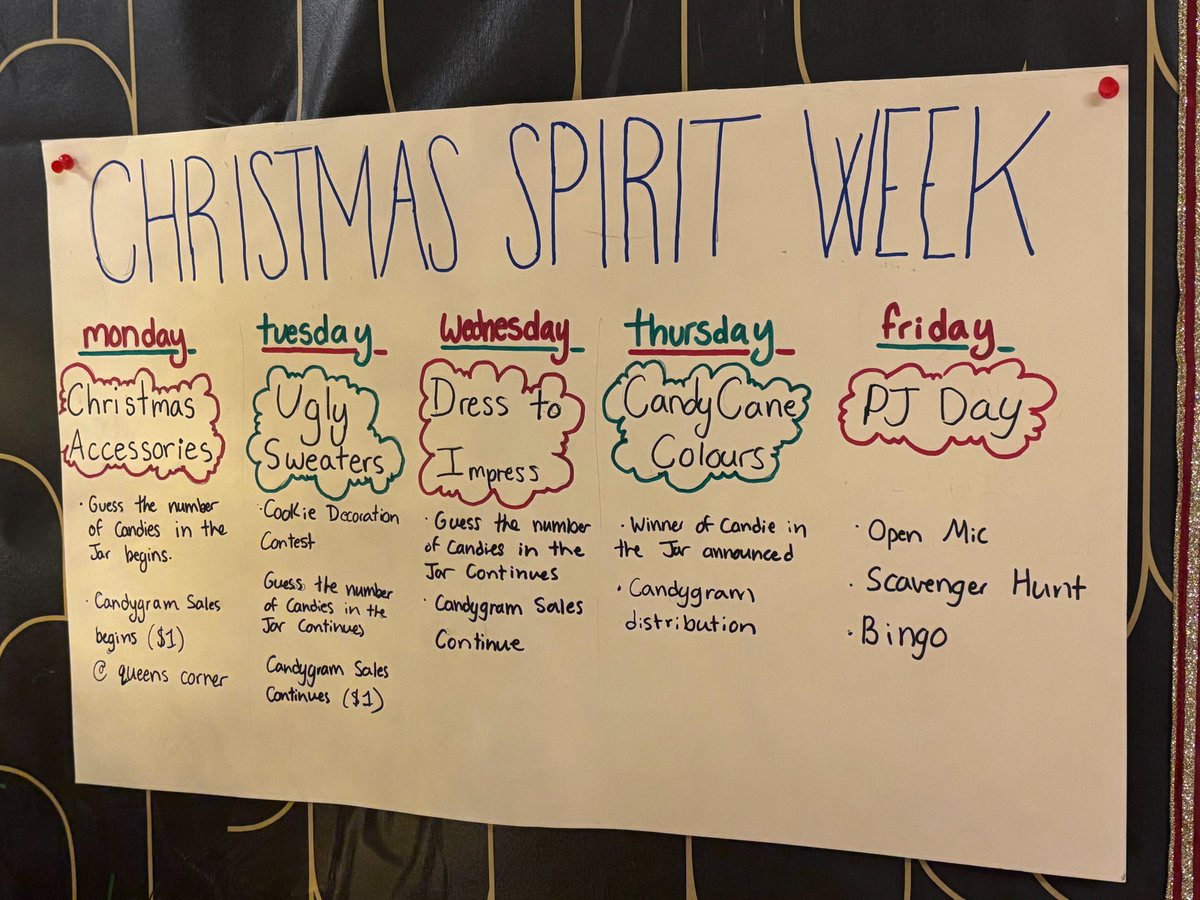 CHRISTMAS SPIRIT WEEK
monday
Christmas
Accessories
· Guess the number
of Candies in the
Jar begins.
· Candygram Sales
begins ($1)
@ queens corner
tuesday
Ugly
Sweaters
· Cookie Decoration
Contest
Guess the number
of Candies in the
Jar Continues
Candygram Sales
Continues ($1)
Wednesday
Dress to
Impress
· Guess the number
of Candies in the
Jar Continues
· Candygram Sales
Continue
thursday
Candy Cane
Colours
· Winner of Candie in
the Jar announced
· Candygram
distribution
friday
PJ Day
· Open Mic
· Scavenger Hunt
· Bingo